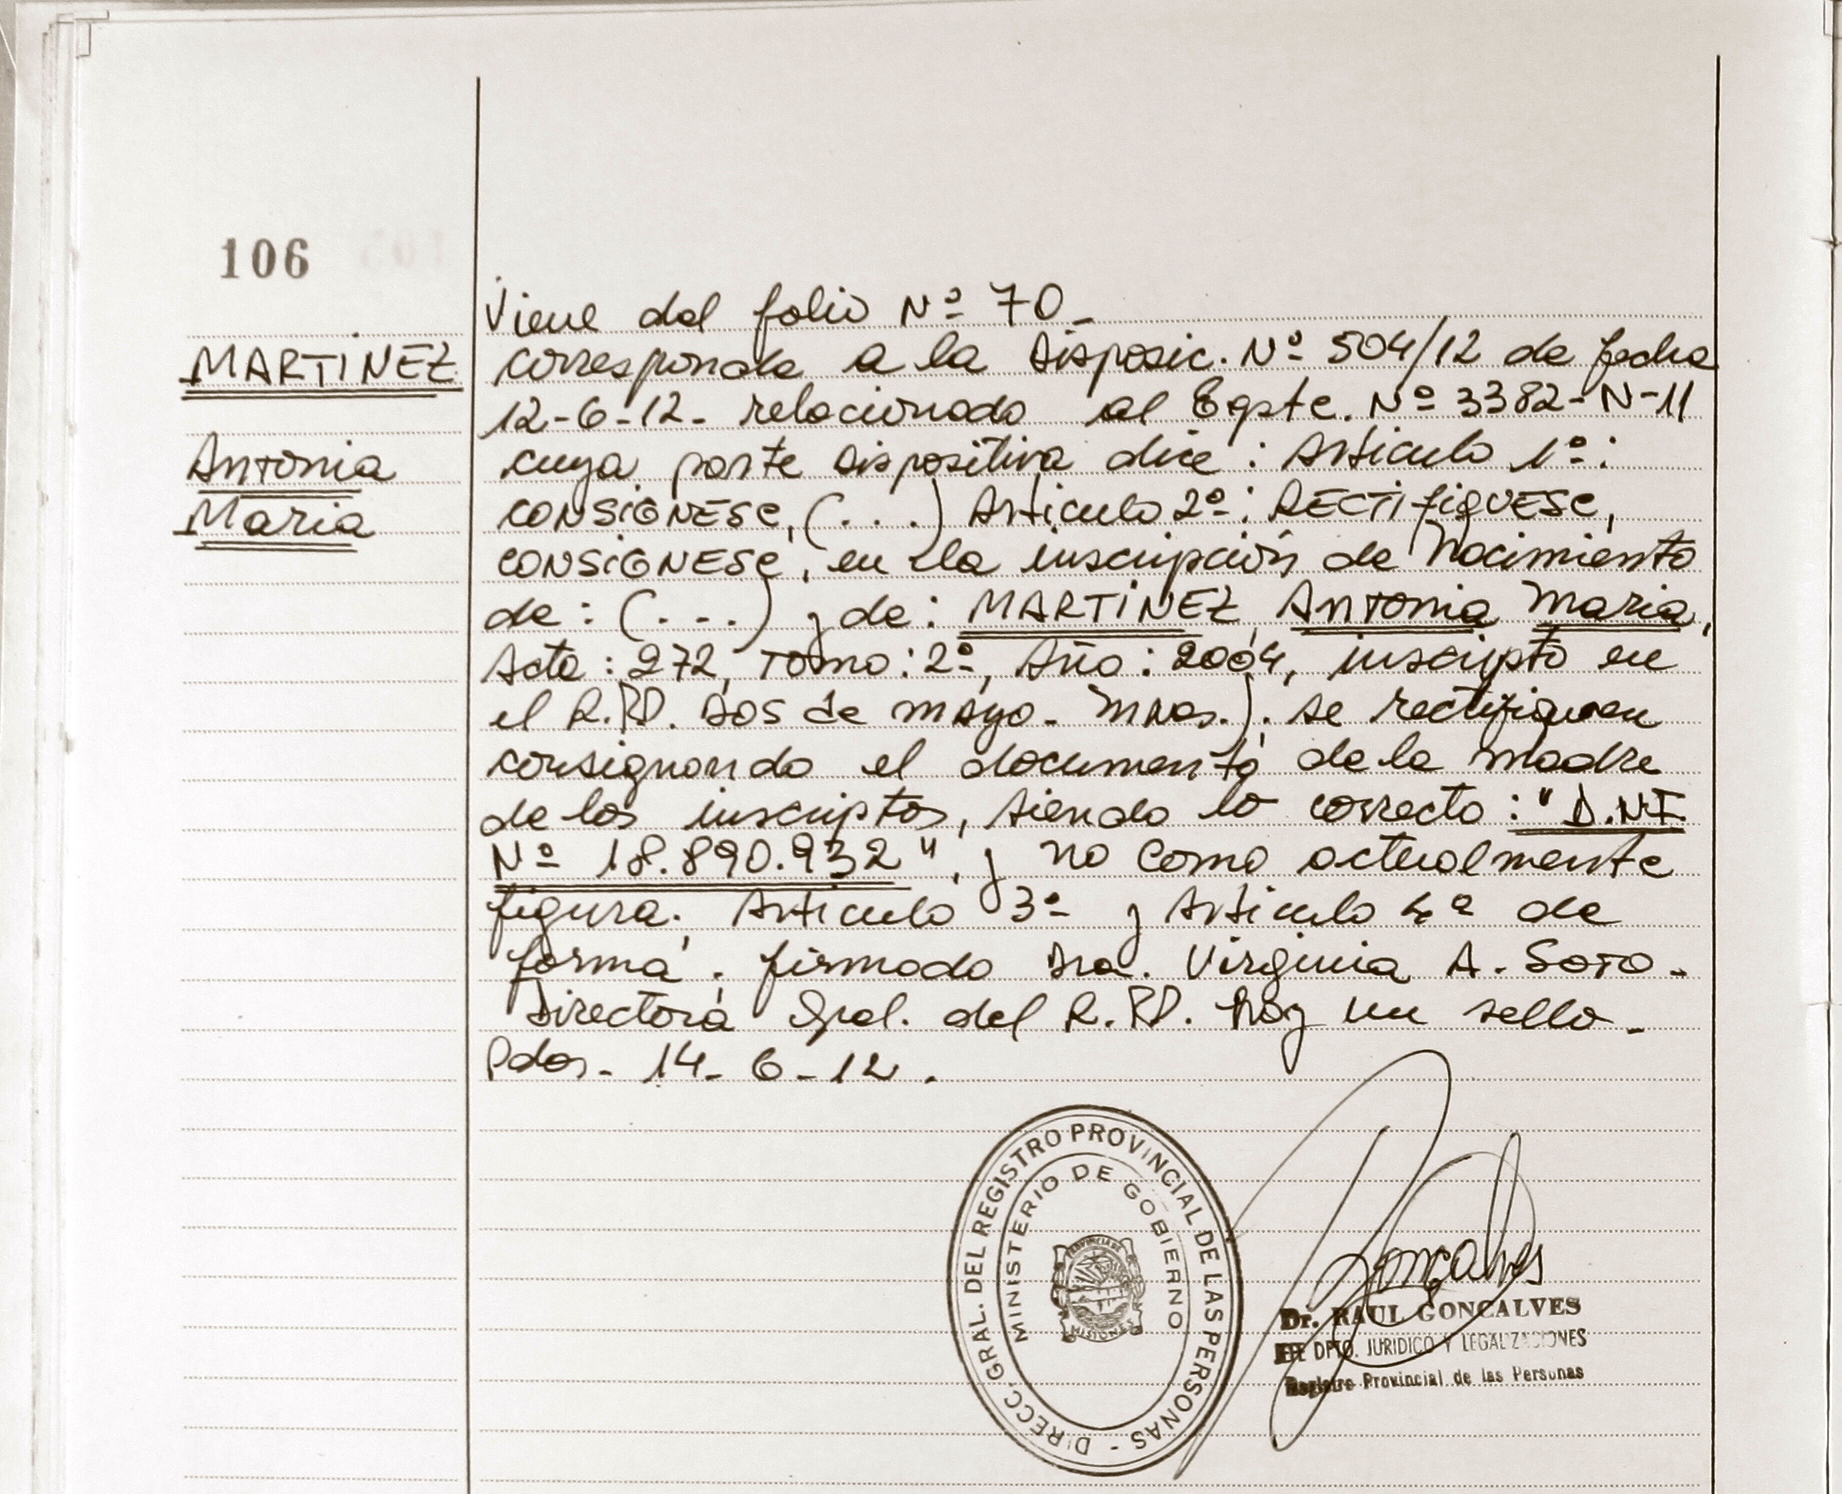 106
Viene del folio Nº 70-
MARTINEZ
corresponde a la disposic. Nº 504/12 de fecha
12-6-12- relacionado al Expte. Nº 3382-N-11
Antonia
cuya parte dispositiva dice: Articulo 1º:
Maria
CONSIGNESE, (...) Articulo 2º: RECTIFIQUESE,
CONSIGNESE, en la inscripción de Nacimiento
de: (...) y de: MARTINEZ, Antonia Maria,
Acta: 272, Tomo: 2º, Año: 2004, inscripto en
el R.PP. Dos de mayo- Mnes.). se rectifiquen
consignando el documento de la madre
de los inscriptos, siendo lo correcto: "D.N.I
Nº 18.890.932", y no como actualmente
figura. Articulo 3º y Articulo 4º de
forma. firmado Dra. Virginia A. Soto-
Directora Gral. del R.PP. hay un sello-
Pdas- 14-6-12.
DIRECC. GRAL. DEL REGISTRO PROVINCIAL DE LAS PERSONAS -
MINISTERIO DE GOBIERNO
PROVINCIA DE
MISIONES
Gonçalves
Dr. RAUL GONCALVES
JEFE DPTO. JURIDICO Y LEGALIZACIONES
Registro Provincial de las Personas